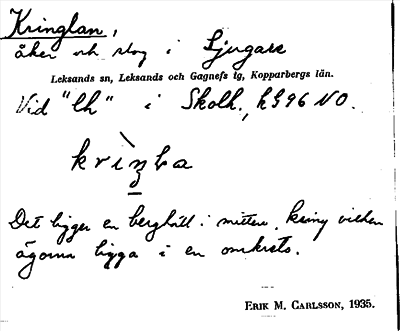 Kringlan,
åker och slog i Ljugare
Leksands sn, Leksands och Gagnefs tg, Kopparbergs län.
Vid "lh" i Skolh., kG96 NO.
Det ligger en berghäll i mitten, kring vilken
ägorna ligga i en omkrets.
ERIK M. CARLSSON, 1935.